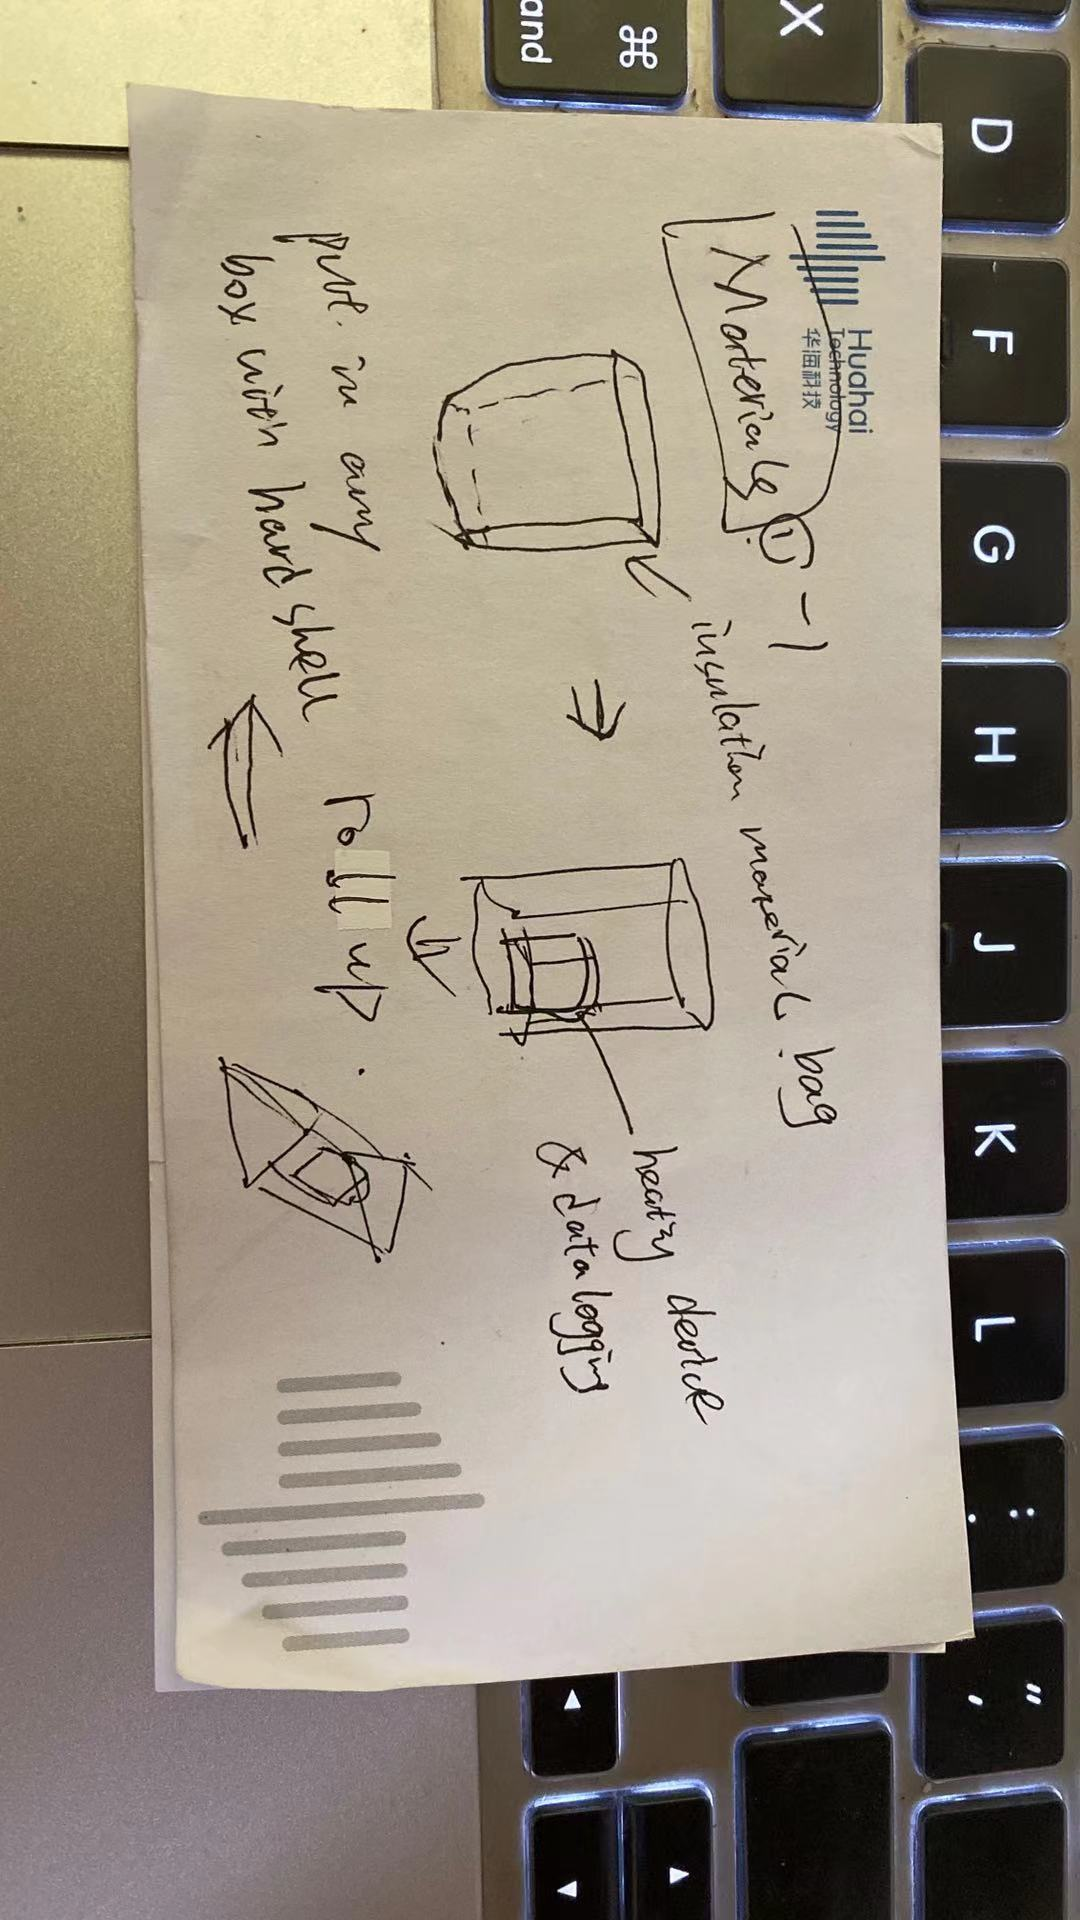 Huahai
Technology
华海科技
Materials ① -1
insulation material bag
heating device
& data logging
roll up.
put in any
box with hard shell
and
⌘
X
D
F
G
H
J
K
L
: ;
" '